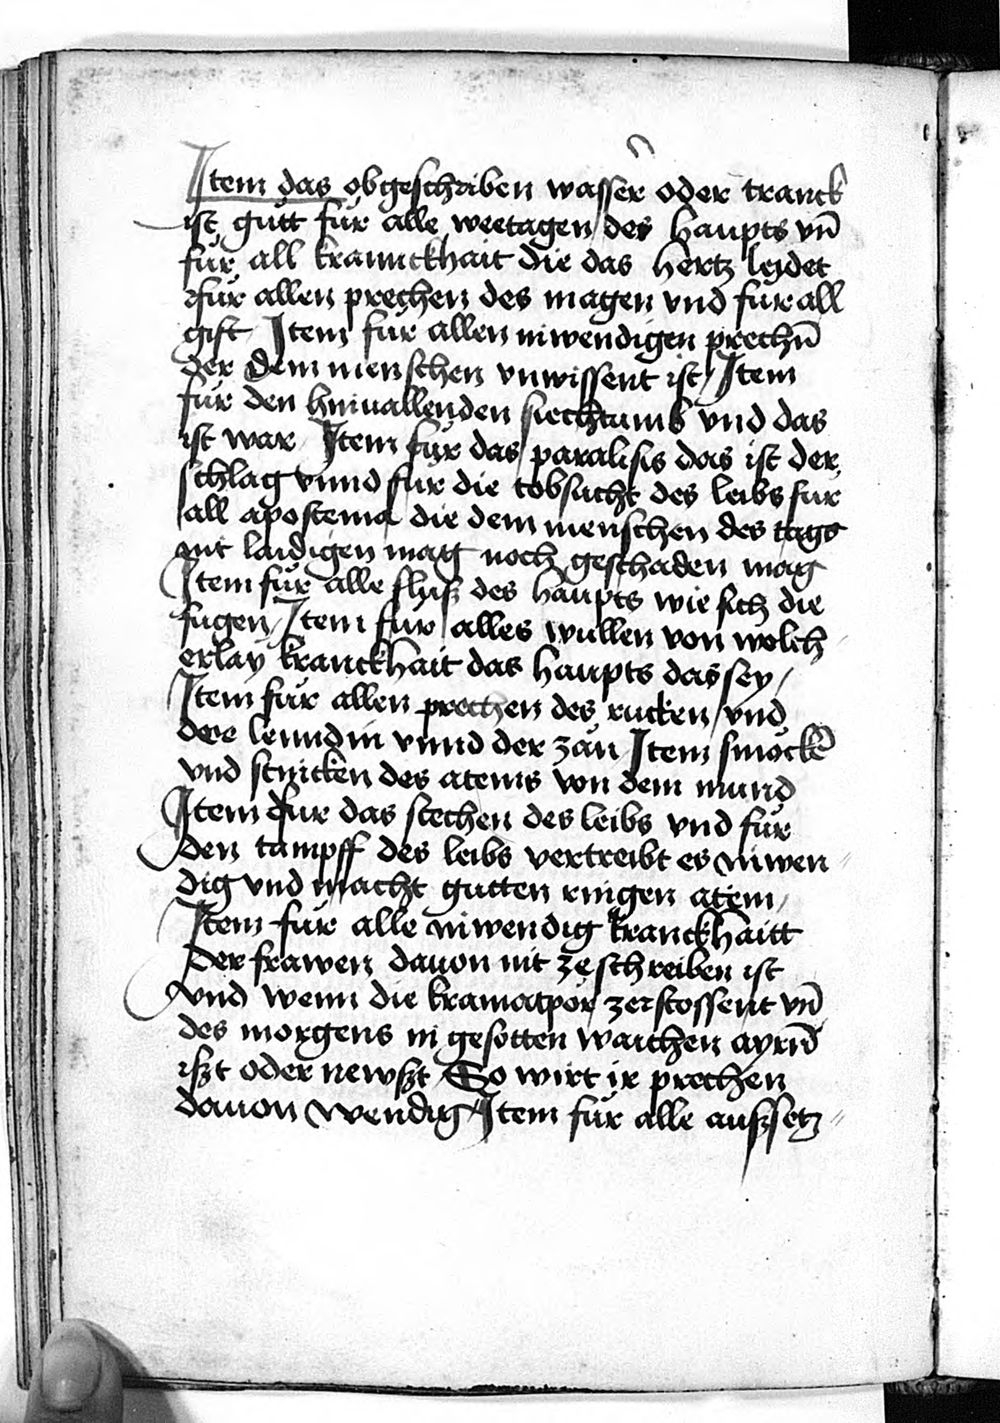 Item das obgeschriben wasser oder tranck
ist gůtt fůr alle weetagen des haupts vn̄
fůr all krannckhait die das hertz leydet
fůr allen prechen des magen vnd fůr all
gift / Item fůr allen inwendigen prechn̄
der dem menschen vnwissent ist / Item
fůr den hinuallenden siechtumb vnd das
ist war / Item fůr das paralisis das ist der
schlag vnnd fůr die tobsucht des leibs fůr
all apostema die dem menschen des tags
nit laidigen mag noch geschaden mag
Item fůr alle fluß des haupts wie sich die
fugen / Item fůr alles wullen von welch
erlay kranckhait das haupts das sey /
Item fůr allen prechen des rucken / vnd
der lenndin vnnd der zån Item smöckē
vnd stincken des atems von dem mund
Item fůr das stechen des leibs vnd fůr
den tampff des leibs vertreibt es inwen
dig vnd macht gutten ringen atem /
Item fůr alle inwendig kranckhaitt
der frawen dauon nit ze schreiben ist
Vnd wenn die kramatpör zerstossent vn̄
des morgens in gesotten waichen ayrn̄
ißt oder newßt / So wirt ir prechen
dauon wendig / Item fůr alle außsetz